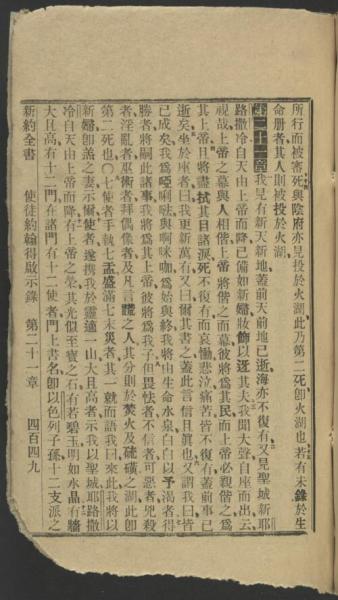 所行而被審死與陰府亦見投於火湖此乃第二死卽火湖也若有未錄於生
命册者其人則被投於火湖
第二十一章 我見有新天新地蓋前天前地已逝海亦不復有又見聖城新耶
路撒冷自天由上帝而降已備如新婦妝飾以迓其夫我聞大聲自座而出云
視哉上帝之幕與人相偕上帝將偕之而幕彼將爲其民而上帝必親偕之爲
其上帝且將盡拭其目諸淚死不復有而哀慟悲泣痛苦皆不復有蓋前事已
逝矣坐於座者曰我更新萬有又曰爾其書之蓋此言信且眞也又謂我曰皆
已成矣我爲啞唎㗑與啊咪咖爲始與終我將由生命水泉白白以予渴者得
勝者將嗣此諸事我將爲其上帝彼將爲我子但畏怯者不信者可惡者兇殺
者淫亂者巫術者拜偶像者及凡言謊之人其分則於焚火及硫磺之湖此卽
第二死也〇七使者手執七盂盛滿七末災者其一就而語我曰來此我將以
新婦卽羔之妻示爾使者遂攜我於靈適一山大且高者示我以聖城耶路撒
冷自天由上帝而降有上帝之榮其光似至寶之石有若碧玉明如水晶有牆
大且高有十二門在諸門有十二使者門上書名卽以色列子孫十二支派之
新約全書 使徒約翰得啟示錄 第二十一章 四百四九